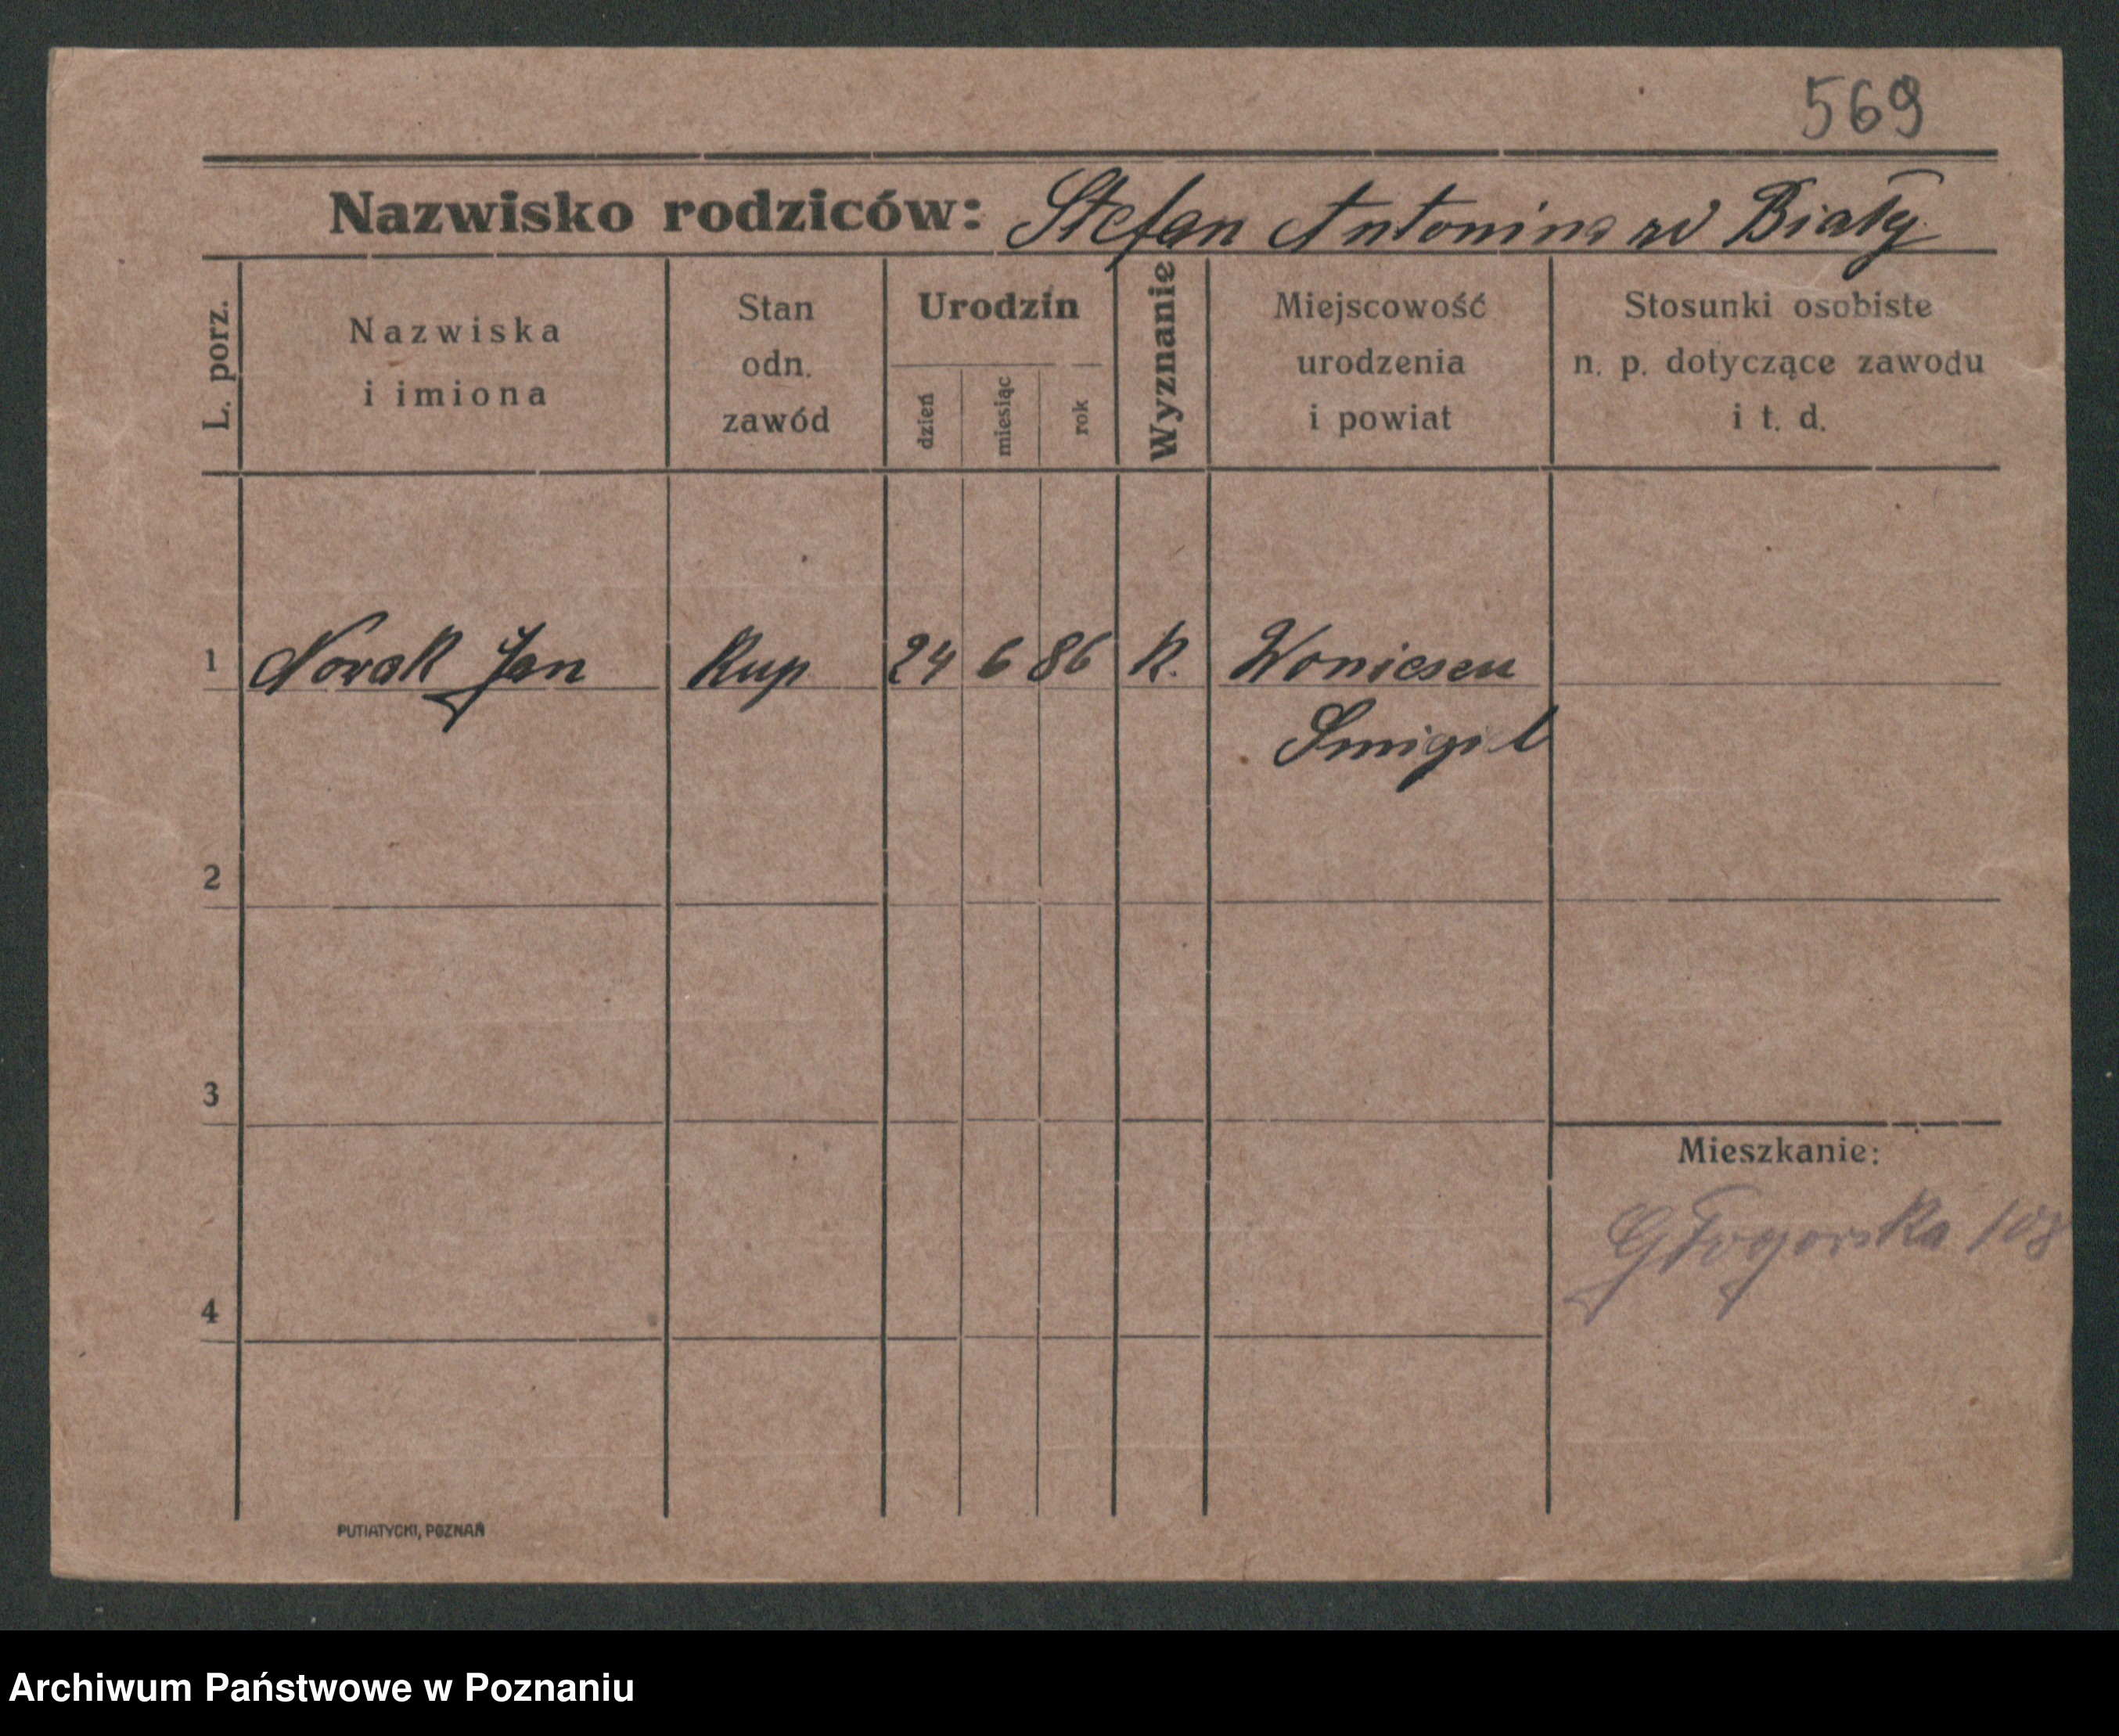 569
Nazwisko rodziców: Stefan Antonina zd Biały
L. porz.
Nazwiska
i imiona
Stan
odn.
zawód
Urodzin
dzień
miesiąc
rok
Wyznanie
Miejscowość
urodzenia
i powiat
Stosunki osobiste
n. p. dotyczące zawodu
i t. d.
1 Nowak Jan Kup 24 6 86 k. Woniesen
Smigiel
2
3
Mieszkanie:
Głogowska 108
4
PUTIATYCKI, POZNAŃ
Archiwum Państwowe w Poznaniu